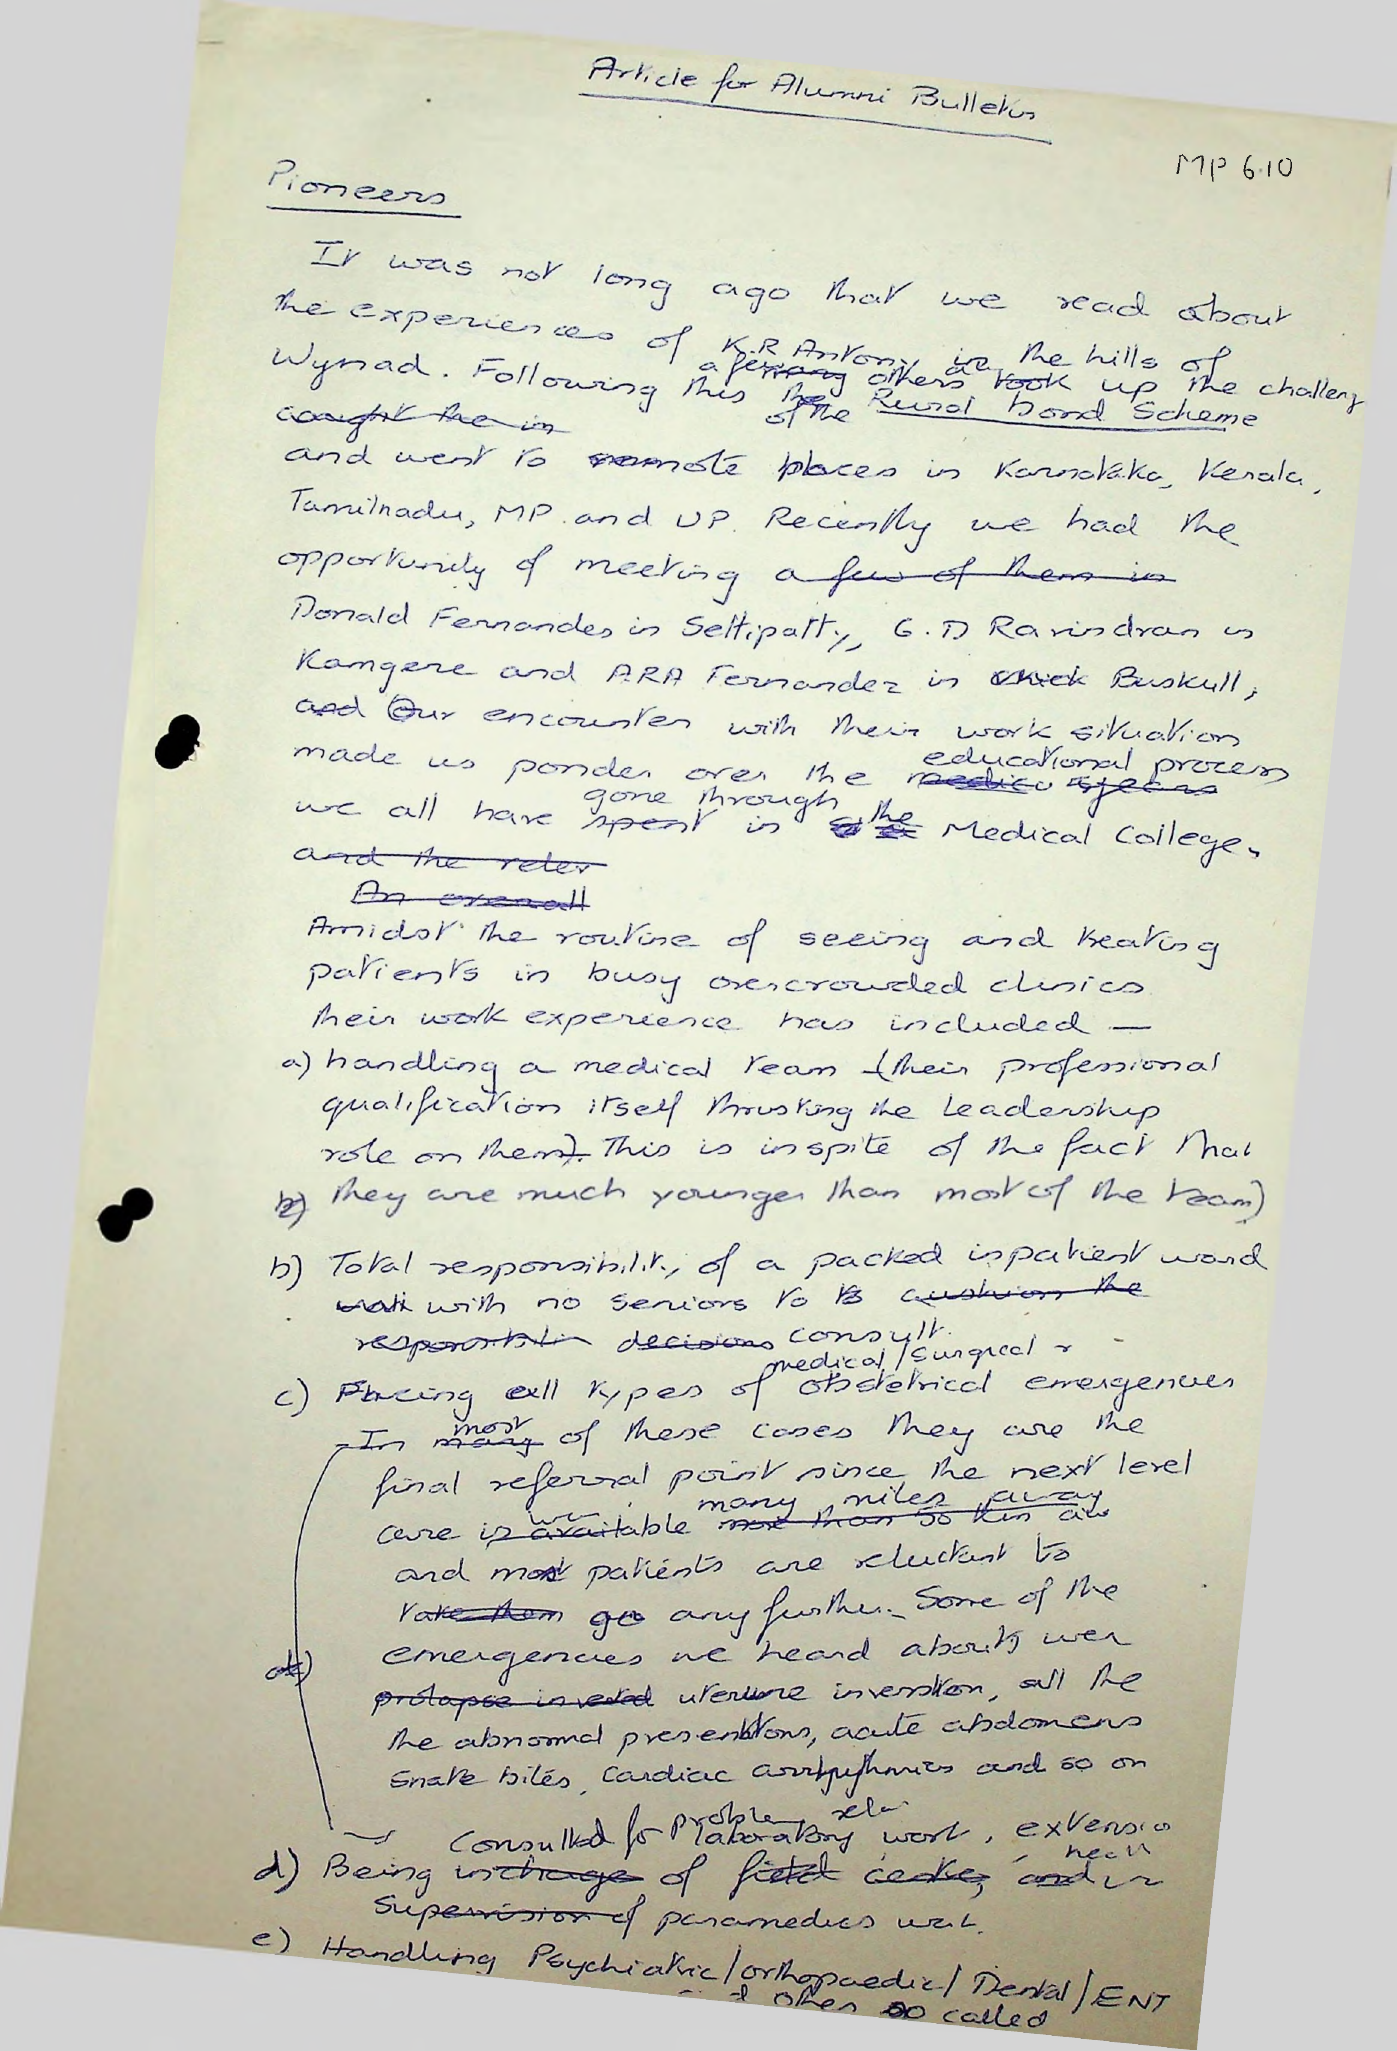 Article for Alumni Bulletin
MP 6.10
Pioneers
It was not long ago that we read about
the experiences of K.R Antony in the hills of
Wynad. Following this a few others took up the challeng
caught the in of the Rural bond Scheme
and went to remote places in Karnataka, Kerala,
Tamilnadu, MP. and UP. Recently we had the
opportunity of meeting a few of them in
Donald Fernandes in Settipatty, G.D Ravindran in
Kamgere and ARA Fernandez in Buskull,
and Our encounter with their work situation
made us ponder over the educational process
we all have gone through in the Medical College.
and the relev
An overall
Amidst the routine of seeing and treating
patients in busy overcrowded clinics
their work experience has included —
a) handling a medical team (their professional
qualification itself thrusting the leadership
role on them). This is inspite of the fact that
b) they are much younger than most of the team)
b) Total responsibility of a packed inpatient ward
with no seniors to cushion the
decisions consult.
medical/surgical
c) Facing all types of obstetrical emergencies
In most many of these cases they are the
final referral point since the next level
care is available many miles away
and most patients are reluctant to
take them go any further. Some of the
emergencies we heard about wer
prolapse inverted uterine inversion, all the
the abnormal presentations, acute abdomens
snake bites, cardiac arrhythmias and so on
Consulted for problem laboratory work, extensio
d) Being incharge of field centre, and
Supervision of paramedics
e) Handling Psychiatric/orthopaedic/Dental/ENT
other so called